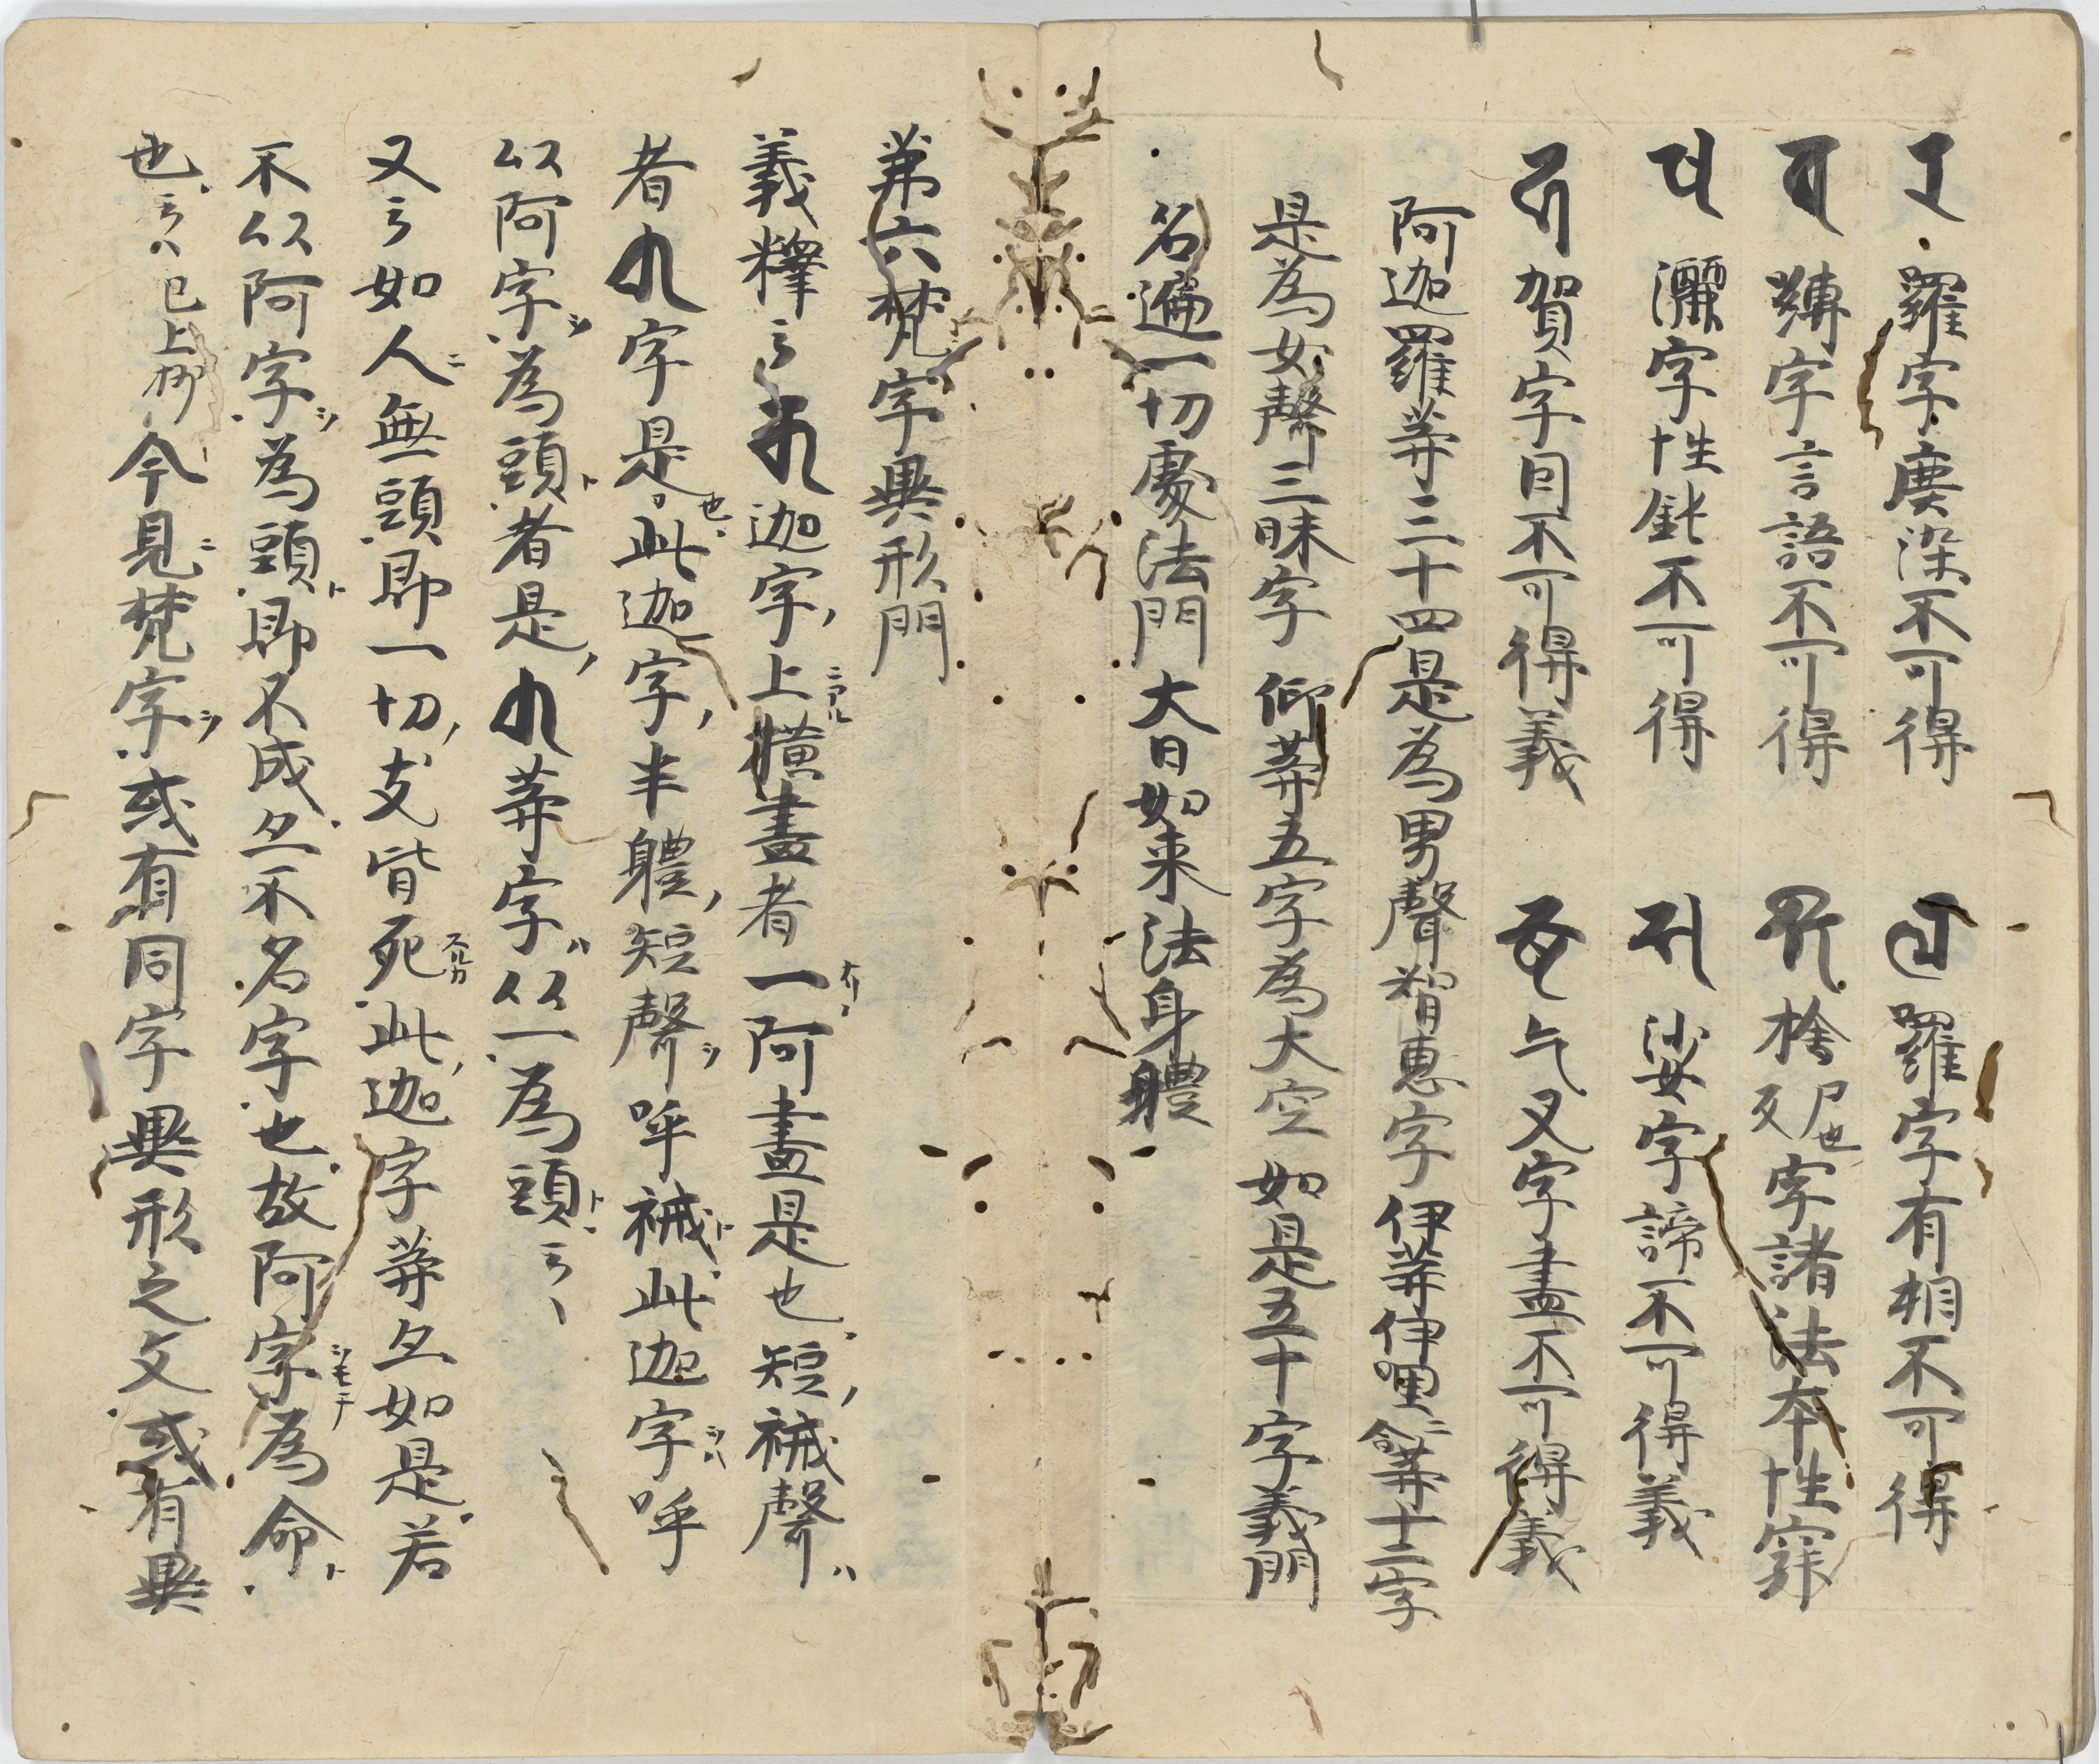 𑖨 羅字塵染不可得 𑖩 羅字有相不可得
𑖪 嚩字言語不可得 𑖫 捨字諸法本性寂
𑖬 灑字性鈍不可得 𑖭 娑字諦不可得義
𑖮 賀字因不可得義 乞叉字盡不可得義
阿迦羅等三十四是為男聲智恵字 伊等伊嗚等十二字
是為女聲三昧字 仰等五字為大空 如是五十字義門
名遍一切處法門 大日如来法身體
第六梵字異形門
義釋云 𑖎 迦字上横畫者一阿畫是也短祴聲
者字是也此迦字半體短聲呼祴此迦字呼
以阿字為頭者是等字以一為頭云々
又云如人無頭即一切支皆死此迦字等亦如是若
不以阿字為頭即不成亦不名字也故阿字為命
也云々已上抄今見梵字或有同字異形之文或有異